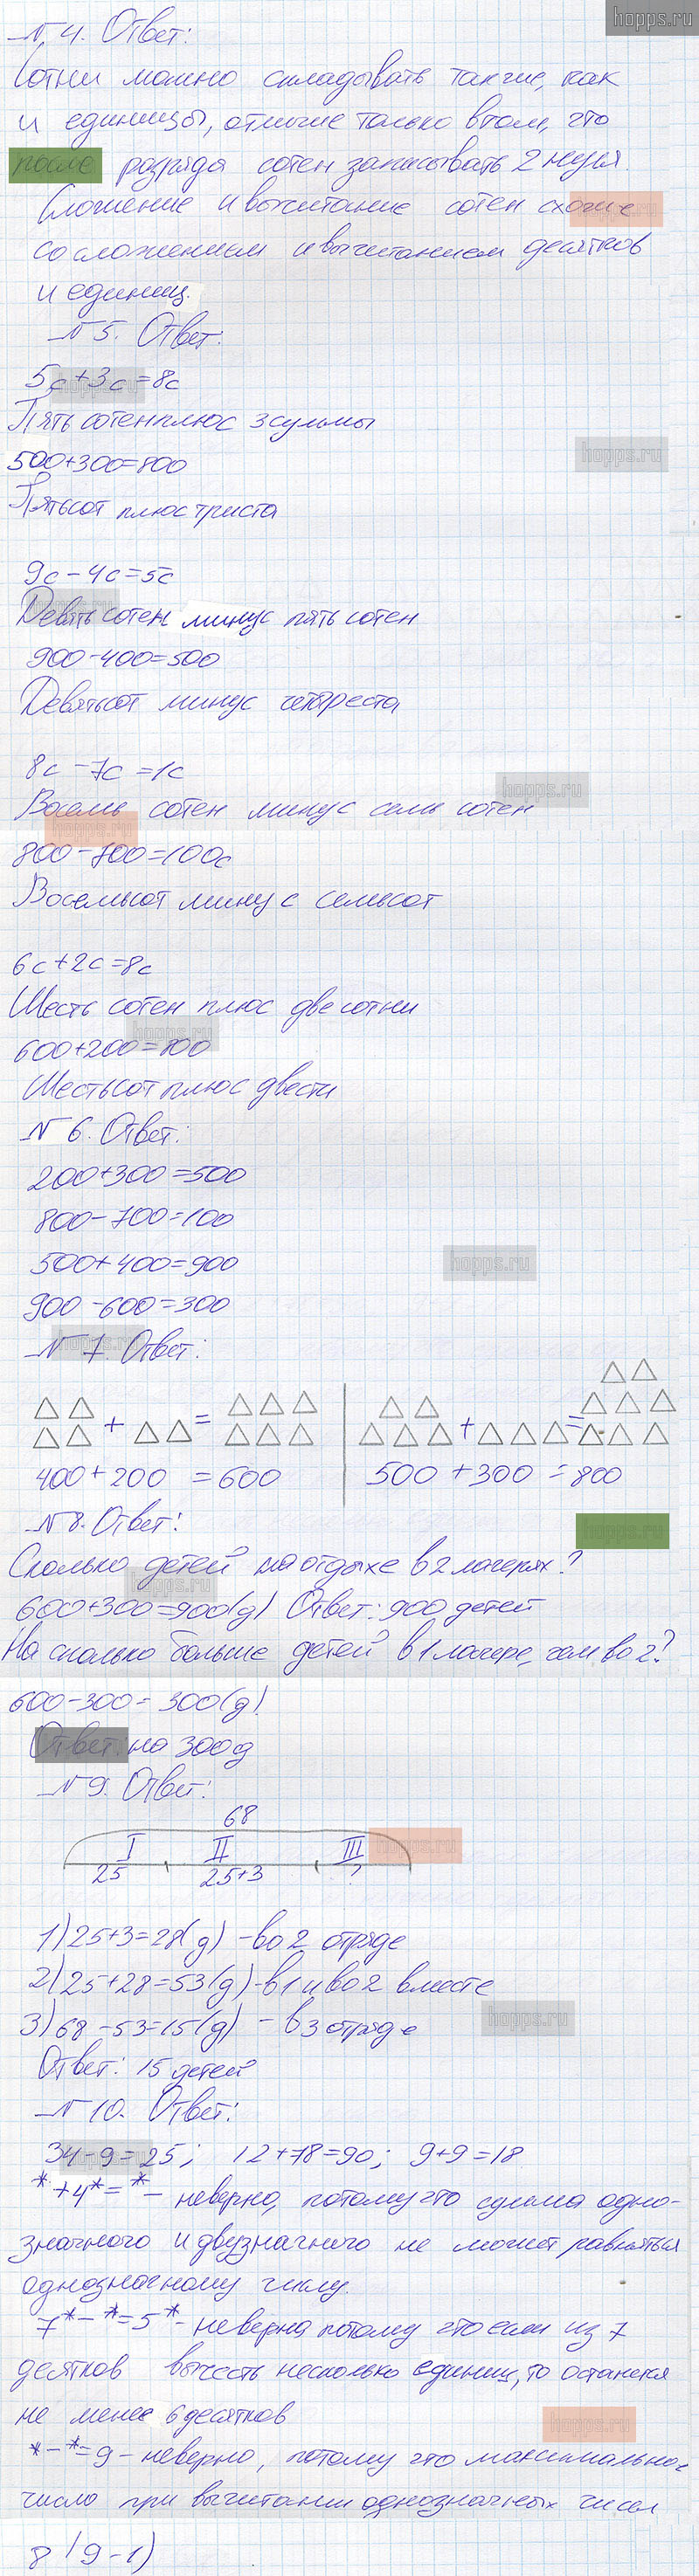 hopps.ru
№ 4. Ответ:
Сотни можно складывать также, как
и единицы, отличие только в том, что
после разряда сотен записывать 2 нуля.
Сложение и вычитание сотен схожие
со сложением и вычитанием десятков
и единиц.
№ 5. Ответ:
5с+3с=8с
Пять сотен плюс 3 суммы
500+300=800
hopps.ru
Пятьсот плюс триста
9с-4с=5с
Девять сотен минус пять сотен
900-400=500
Девятьсот минус четреста
8с-7с=1с
hopps.ru
Восемь сотен минус семь сотен
800-700=100с
Восемьсот минус семьсот
6с+2с=8с
Шесть сотен плюс две сотни
hopps.ru
600+200=800
Шестьсот плюс двести
№ 6. Ответ:
200+300=500
800-700=100
500+400=900
hopps.ru
900-600=300
№ 7. Ответ:
+ = + =
400+200 =600 500+300=800
№8. Ответ:
Сколько детей на отдыхе в 2 лагерях?
hopps.ru
600+300=900(д) Ответ: 900 детей
На сколько больше детей в 1 лагере, чем во 2?
600-300=300(д)
Ответ: на 300 д
№9. Ответ:
68
I II III
hopps.ru
25 25+3 ?
1) 25+3=28(д) - во 2 отряде
2) 25+28=53(д) - в 1 и во 2 вместе
3) 68-53=15(д) - в 3 отряде
hopps.ru
Ответ: 15 детей
№10. Ответ:
34-9=25; 12+78=90; 9+9=18
*+4*=*- неверно, потому что сумма одно-
значного и двузначного не может равняться
однозначному числу.
7*-*=5*- неверно потому что если из 7
десятков вычесть несколько единиц, то останется
не менее 6 десятков
hopps.ru
*-*=9- неверно, потому что максимальное
число при вычитании однозначных чисел
8 (9-1)